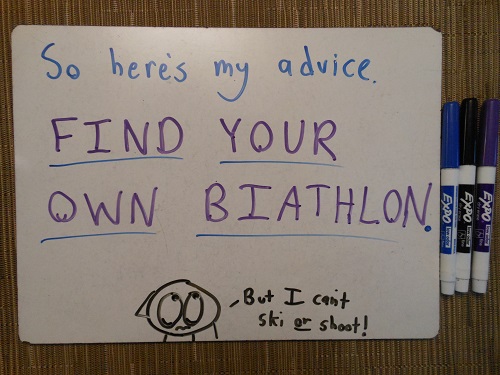 So here's my advice.
FIND YOUR
OWN BIATHLON.
But I can't
ski or shoot!
EXPO
EXPO
EXPO